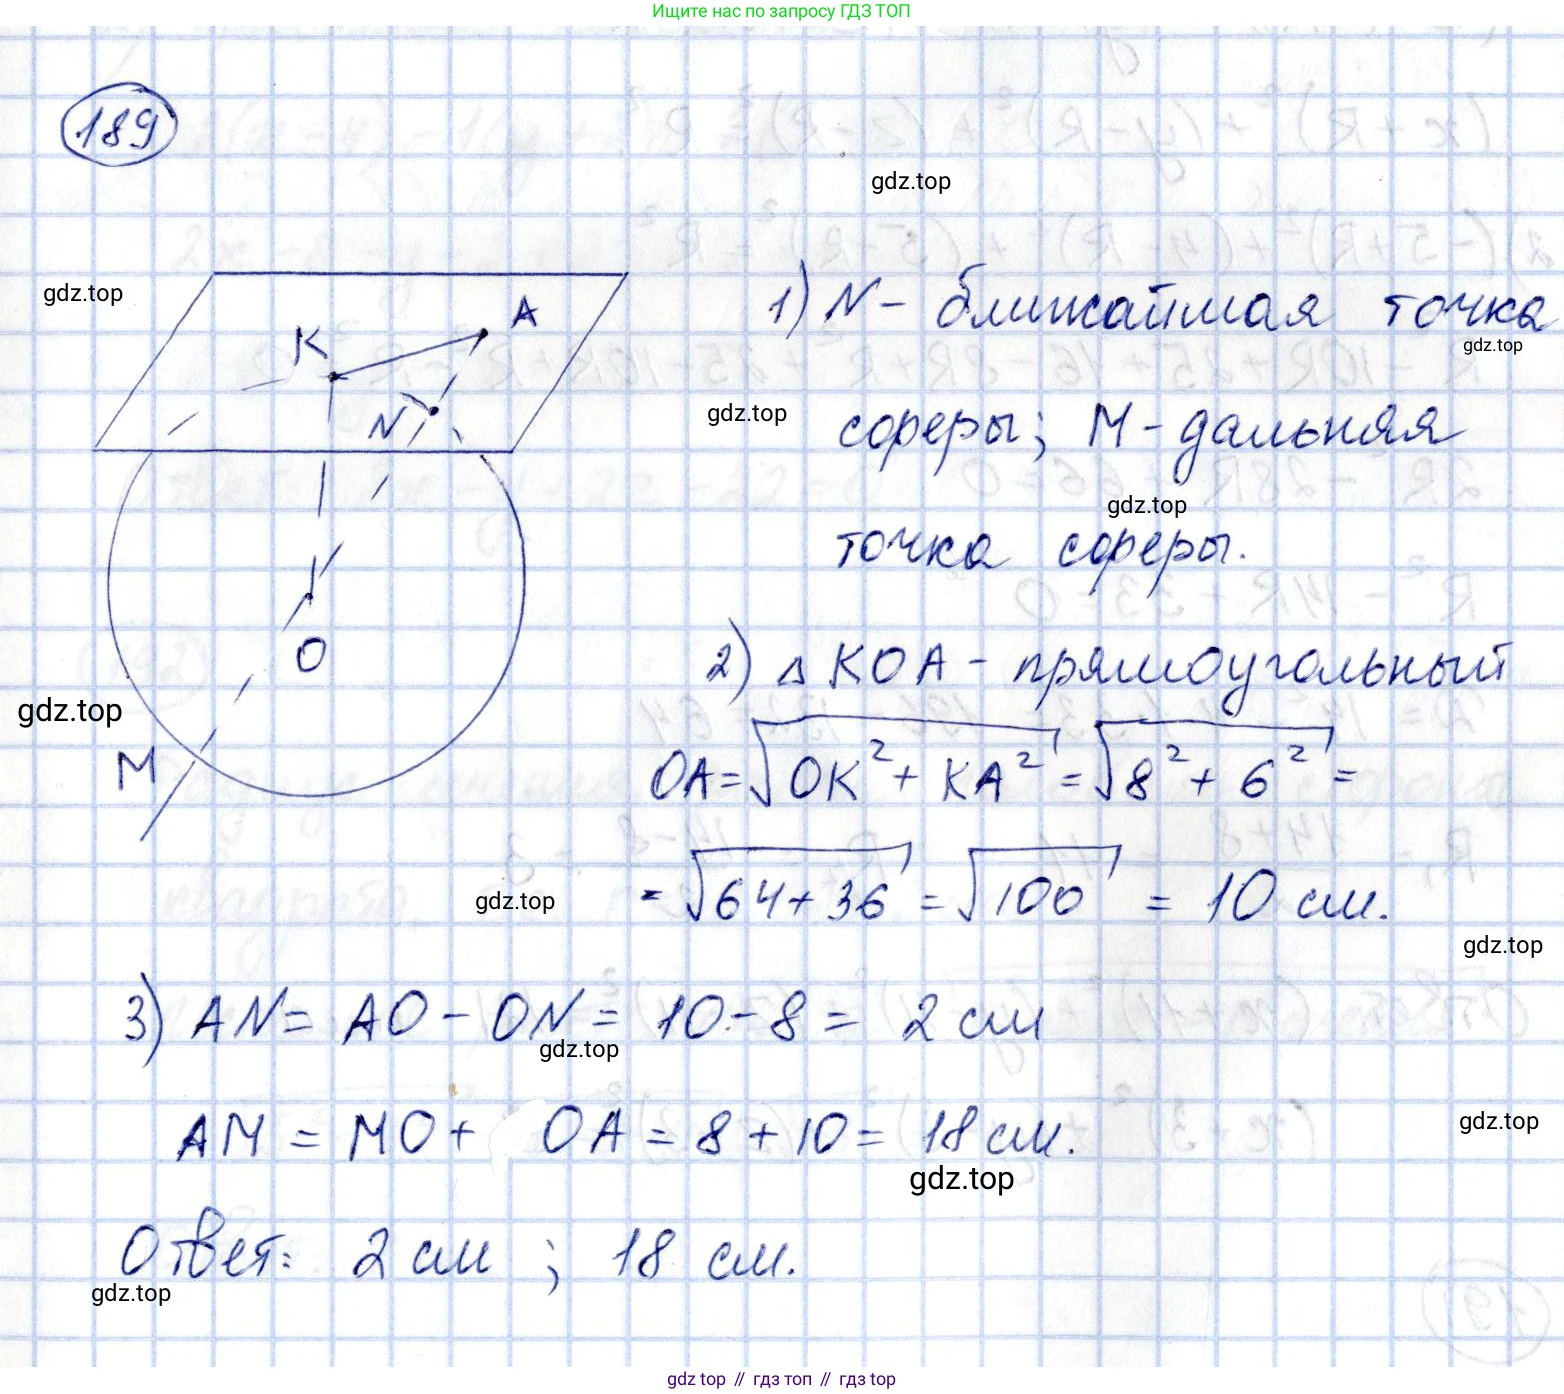 Ищите нас по запросу ГДЗ ТОП
189
gdz.top
gdz.top
K
A
N
O
M
1) N - ближайшая точка
gdz.top
gdz.top
сферы; M - дальняя
gdz.top
точка сферы.
2) △ KOA - прямоугольный
gdz.top
OA = √OK² + KA² = √8² + 6² =
= √64 + 36 = √100 = 10 см.
gdz.top
gdz.top
3) AN = AO - ON = 10 - 8 = 2 см
gdz.top
AM = MO + OA = 8 + 10 = 18 см.
gdz.top
gdz.top
Ответ: 2 см ; 18 см.
gdz.top
gdz top // гдз топ // gdz top